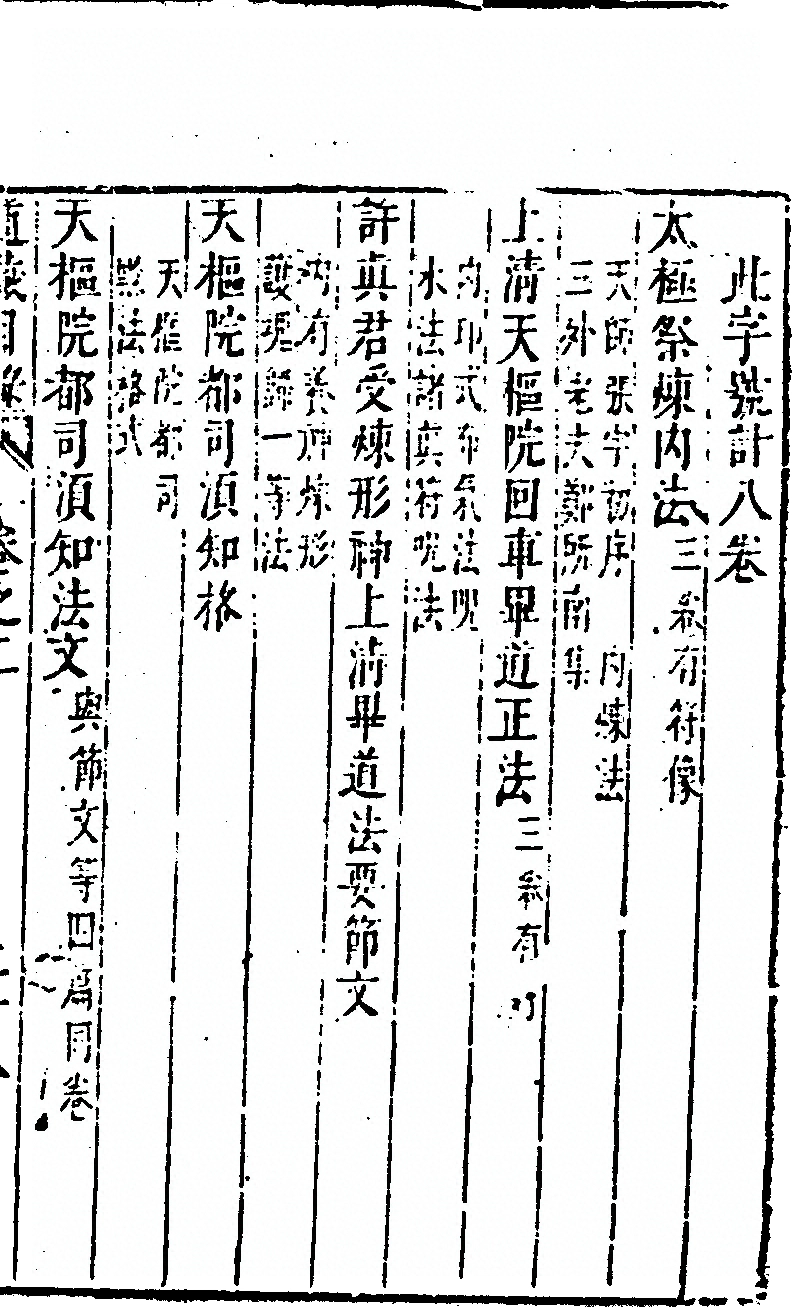 此字號計八卷
太極祭煉內法三卷有符像
天師張宇初序 內煉法
三外老夫鄭所南集
上清天樞院回車畢道正法三卷有符
內印式布氣法呪
水法諸真符呪法
許真君受煉形神上清畢道法要節文
內有養神煉形
護魂歸一等法
天樞院都司須知格
天樞院都司
法格式
天樞院都司須知法文與節文等四篇同卷
道藏目錄 卷之二